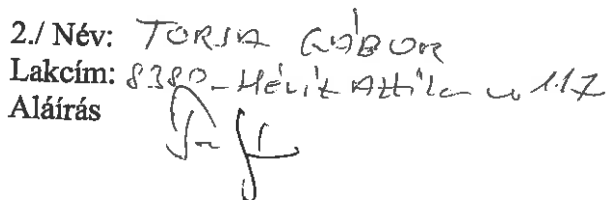 2./ Név: TORSA GÁBOR
Lakcím: 8380 - Hévíz Attila u 117
Aláírás